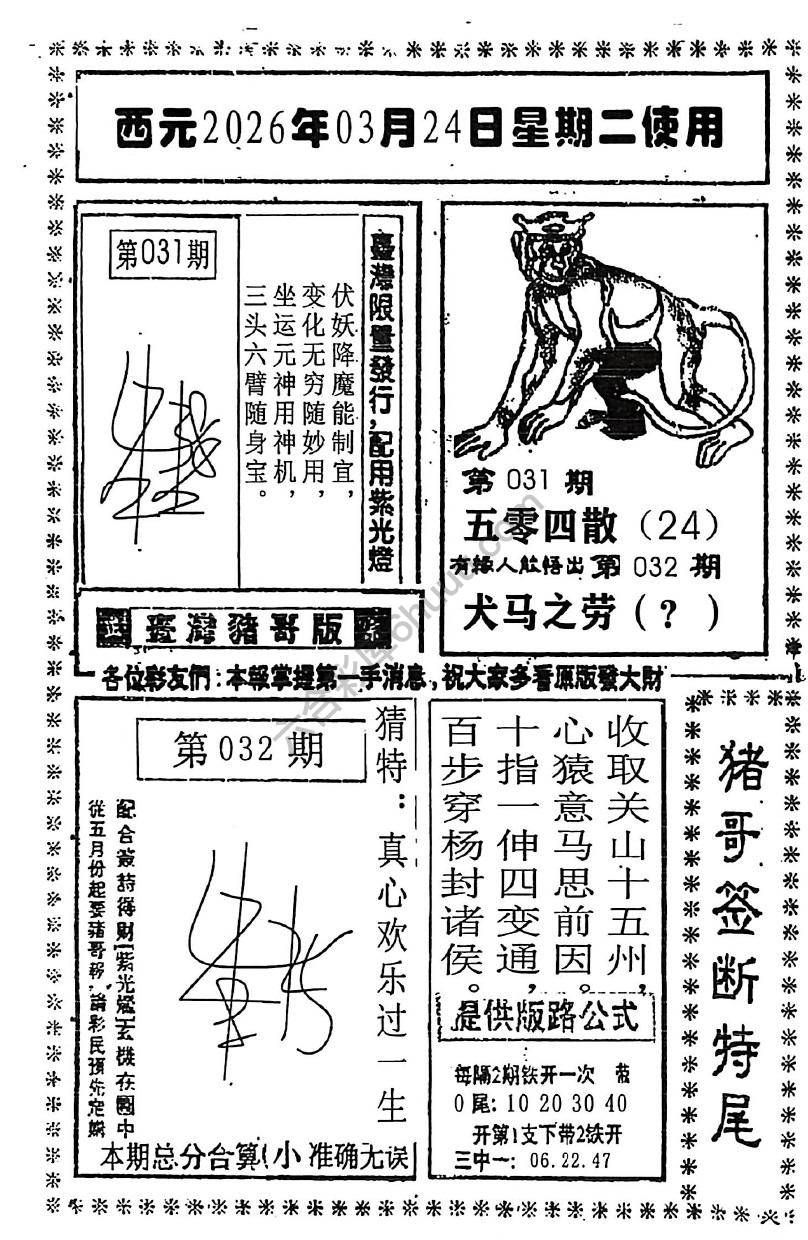 西元2026年03月24日星期二使用
第031期
臺灣限量發行,配用紫光燈
伏妖降魔能制宜,
变化无穷随妙用,
坐运元神用神机,
三头六臂随身宝。
臺灣豬哥版
第 031 期
五零四散（24）
有緣人能悟出 第 032 期
犬马之劳（？）
各位彩友們:本報掌握第一手消息,祝大家多看原版發大財
六合彩库6huu.com
第 032 期
猜特：真心欢乐过一生
從五月份起要豬哥報,請彩民預先定購
本期总分合算(小 准确无误
收取关山十五州,
心猿意马思前因。
十指一伸四变通,
百步穿杨封诸侯。
提供版路公式
每隔2期铁开一次 带
0尾: 10 20 30 40
开第1支下带2铁开
三中一: 06.22.47
猪哥签断特尾